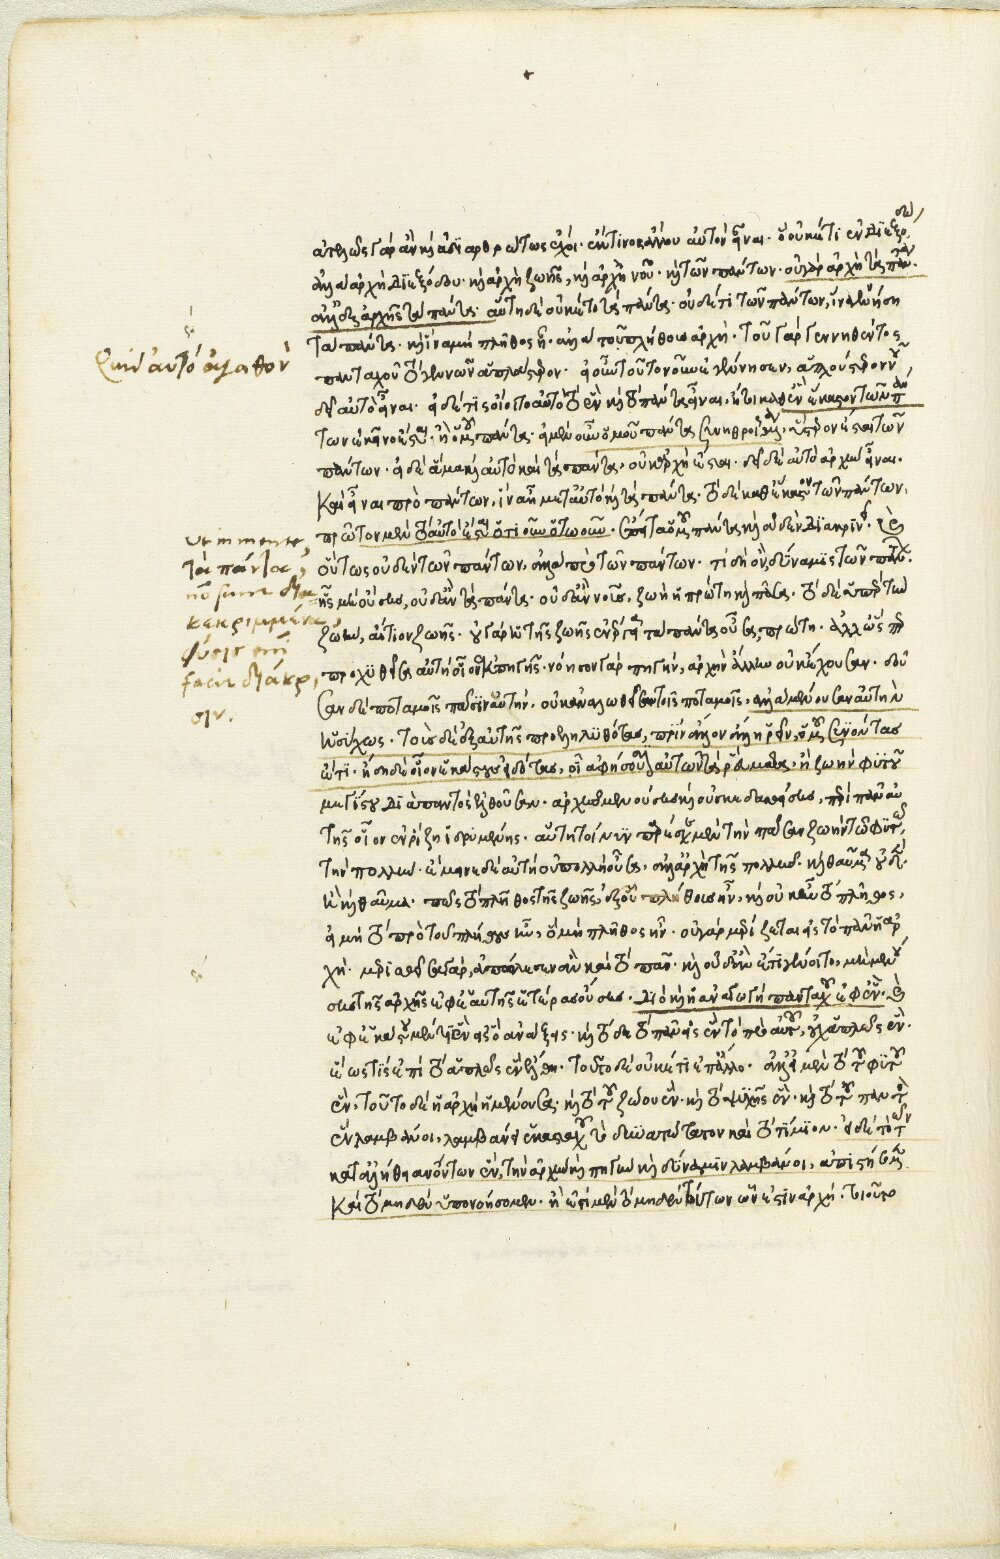 ἀτελῶς γὰρ ἂν καὶ ἀδιαρθρώτως ἔχοι· ἔκ τινος ἄλλου αὐτὸν εἶναι· ὃ οὐκέτι ἐν διεξόδῳ,
ἀλλ' ἀρχὴ διεξόδου· καὶ ἀρχὴ ζωῆς, καὶ ἀρχὴ νοῦ· καὶ τῶν πάντων· οὐ γὰρ ἀρχὴ τὰ πάντα·
ἀλλ' ἐξ ἀρχῆς τὰ πάντα· αὕτη δὲ οὐκέτι τὰ πάντα· οὐδέ τι τῶν πάντων, ἵνα γεννήσῃ
τὰ πάντα· καὶ ἵνα μὴ πλῆθος ᾖ· ἀλλὰ τοῦ πλήθους ἀρχή· τοῦ γὰρ γεννηθέντος
πανταχοῦ τὸ γεννῶν ἁπλούστερον· εἰ οὖν τοῦτο νοῦν ἐγέννησεν, ἁπλούστερον νοῦ
δεῖ αὐτὸ εἶναι· εἰ δέ τις οἴοιτο αὐτὸ τὸ ἓν καὶ τὰ πάντα εἶναι, ἤτοι καθ' ἓν ἕκαστον τῶν πάν
των ἐκεῖνο ἔσται· ἢ ὁμοῦ πάντα· εἰ μὲν οὖν ὁμοῦ πάντα συνηθροισμένα, ὕστερον ἔσται τῶν
πάντων· εἰ δὲ ἅμα καὶ αὐτὸ καὶ τὰ πάντα, οὐκ ἀρχὴ ἔσται· δεῖ δὲ αὐτὸ ἀρχὴν εἶναι·
καὶ εἶναι πρὸ πάντων, ἵνα ᾖ μετ' αὐτὸ καὶ τὰ πάντα· τὸ δὲ καθ' ἕκαστον τῶν πάντων,
πρῶτον μὲν τὸ αὐτὸ ἔσται ὁτιοῦν ὁτῳοῦν· ἔπειτα ὁμοῦ πάντα καὶ οὐδὲν διακρινεῖ· καὶ
οὕτως οὐδὲν τῶν πάντων, ἀλλὰ πρὸ τῶν πάντων· τί δὴ ὄν, δύναμις τῶν πάντων·
ἧς μὴ οὔσης, οὐδ' ἂν τὰ πάντα· οὐδ' ἂν νοῦς, ζωὴ ἡ πρώτη καὶ πᾶσα· τὸ δὲ ὑπὲρ τὴν
ζωὴν, αἴτιον ζωῆς· οὐ γὰρ ἡ τῆς ζωῆς ἐνέργεια τὰ πάντα οὖσα, πρώτη· ἀλλ' ὥσπερ
προχυθεῖσα αὐτὴ οἷον ἐκ πηγῆς· νόησον γὰρ πηγὴν, ἀρχὴν ἄλλην οὐκ ἔχουσαν· δοῦ
σαν δὲ ποταμοῖς πᾶσιν αὐτήν· οὐκ ἀναλωθεῖσαν τοῖς ποταμοῖς, ἀλλὰ μένουσαν αὐτὴν
ἡσύχως· τοὺς δὲ ἐξ αὐτῆς προεληλυθότας, πρὶν ἄλλον ἄλλη ῥεῖν, ὁμοῦ συνόντας
ἔτι· ἤδη δὲ οἷον ἑκάστους εἰδότας, οἷ ἀφήσουσιν αὐτῶν τὰ ῥεύματα· ἢ ζωὴν φυτοῦ
μεγίστου διὰ παντὸς ἐλθοῦσαν· ἀρχῆς μενούσης καὶ οὐ σκεδασθείσης, περὶ πᾶν αὐ
τῆς οἷον ἐν ῥίζῃ ἱδρυμένης· αὕτη τοίνυν παρέσχε μὲν τὴν πᾶσαν ζωὴν τῷ φυτῷ,
τὴν πολλήν· ἔμεινε δὲ αὐτὴ οὐ πολλὴ οὖσα, ἀλλ' ἀρχὴ τῆς πολλῆς· καὶ θαῦμα οὐδέν·
ἢ καὶ θαῦμα· πῶς τὸ πλῆθος τῆς ζωῆς, ἐξ οὐ πλήθους ἦν, καὶ οὐκ ἦν τὸ πλῆθος,
εἰ μὴ τὸ πρὸ τοῦ πλήθους ἦν, ὃ μὴ πλῆθος ἦν· οὐ γὰρ μερίζεται εἰς τὸ πᾶν ἡ ἀρ
χή· μερισθεῖσα γὰρ, ἀπώλεσεν ἂν καὶ τὸ πᾶν· καὶ οὐδ' ἂν ἔτι γένοιτο, μὴ μενού
σης τῆς ἀρχῆς ἐφ' ἑαυτῆς ἑτέρας οὔσης· διὸ καὶ ἡ ἀναγωγὴ πανταχοῦ ἐφ' ἕν· καὶ
ἐφ' ἑκάστου μέν τι ἓν εἰς ὃ ἀνάξεις· καὶ τόδε τὸ πᾶν εἰς ἓν τὸ πρὸ αὐτοῦ, οὐχ ἁπλῶς ἕν·
ἕως τις ἐπὶ τὸ ἁπλῶς ἓν ἔλθῃ· τοῦτο δὲ οὐκέτι ἐπ' ἄλλο· ἀλλ' εἰ μὲν τὸ τοῦ φυτοῦ
ἕν· τοῦτο δὲ ἡ ἀρχὴ ἡ μένουσα· καὶ τὸ τοῦ ζῴου ἕν· καὶ τὸ ψυχῆς ἕν· καὶ τὸ τοῦ παντὸς
ἓν λαμβάνοι, λαμβάνει ἑκασταχοῦ τὸ δυνατώτατον καὶ τὸ τίμιον· εἰ δὲ τὸ τῶν
κατ' ἀλήθειαν ὄντων ἕν, τὴν ἀρχὴν καὶ πηγὴν καὶ δύναμιν λαμβάνοι, ἀπιστήσομεν
καὶ τὸ μηδὲν ὑπονοήσομεν· ἢ ἔστι μὲν τὸ μηδὲν τούτων ὧν ἐστιν ἀρχή· τοιοῦτο
Quid αὐτό ἀγαθὸν
ut in mente,
τὰ πάντα,
nō sunt δια
κεκριμμένα,
φύσις
facit διάκρι
σιν.